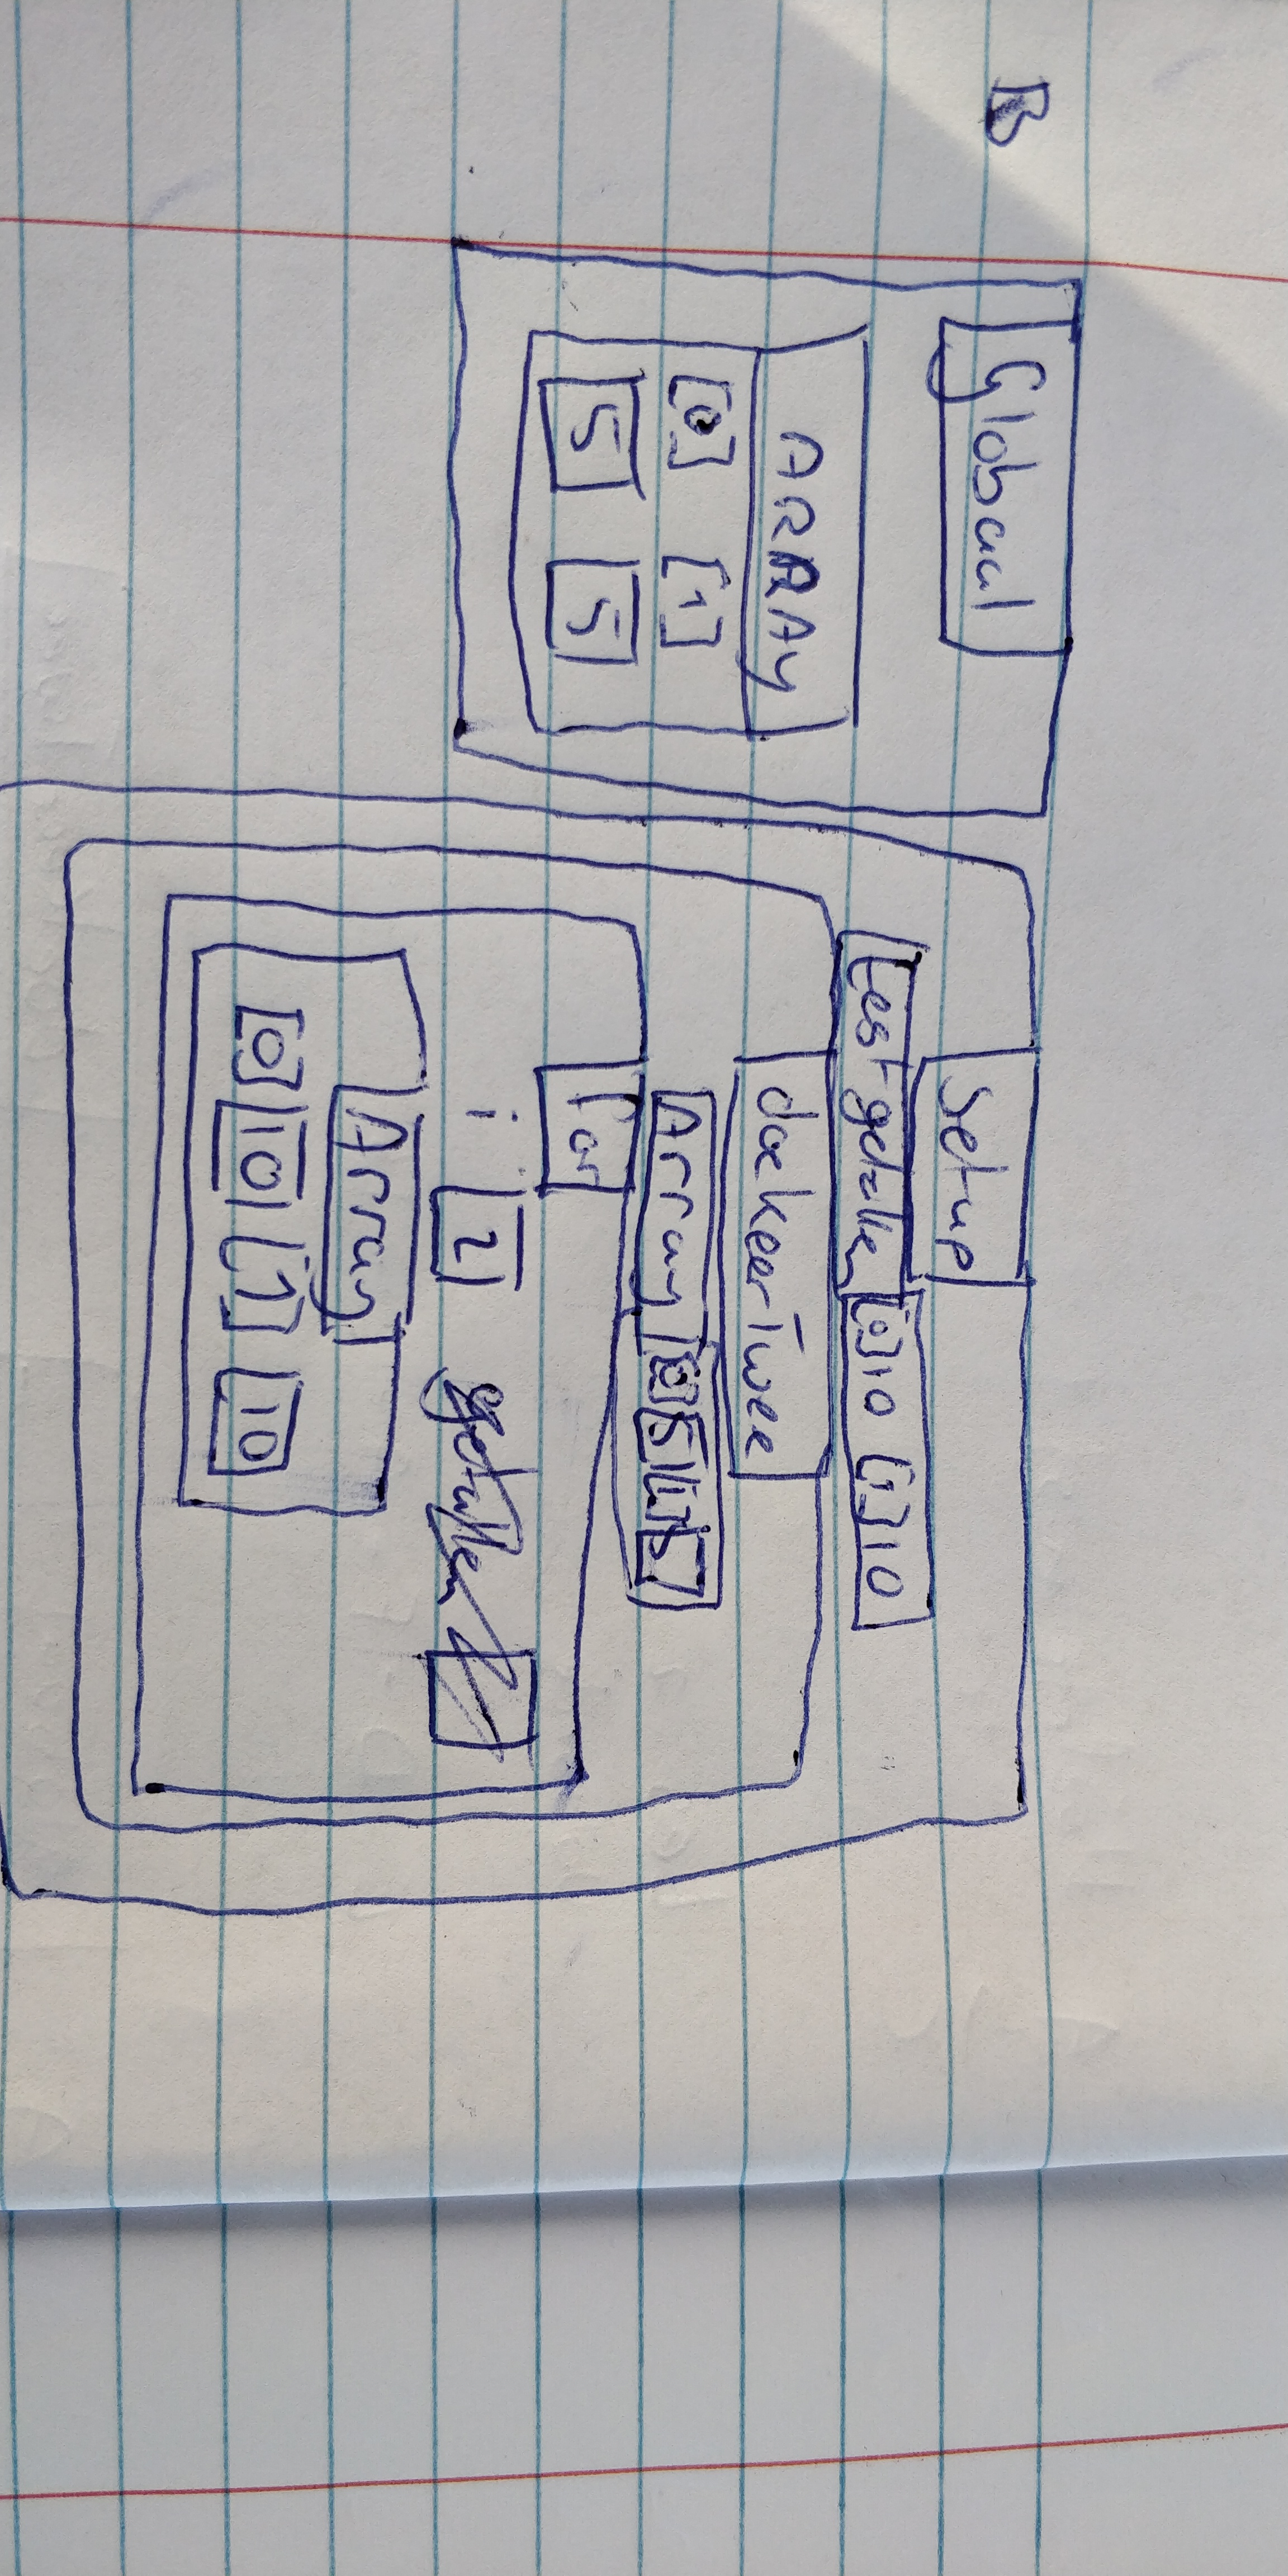 B
Globaal
ARRAY
[0] [1]
5 5
Setup
testgetallen [0] 10 [1] 10
doe keer Twee
Array [0] 5 [1] 5
For
i 2
Array
[0] 10 [1] 10